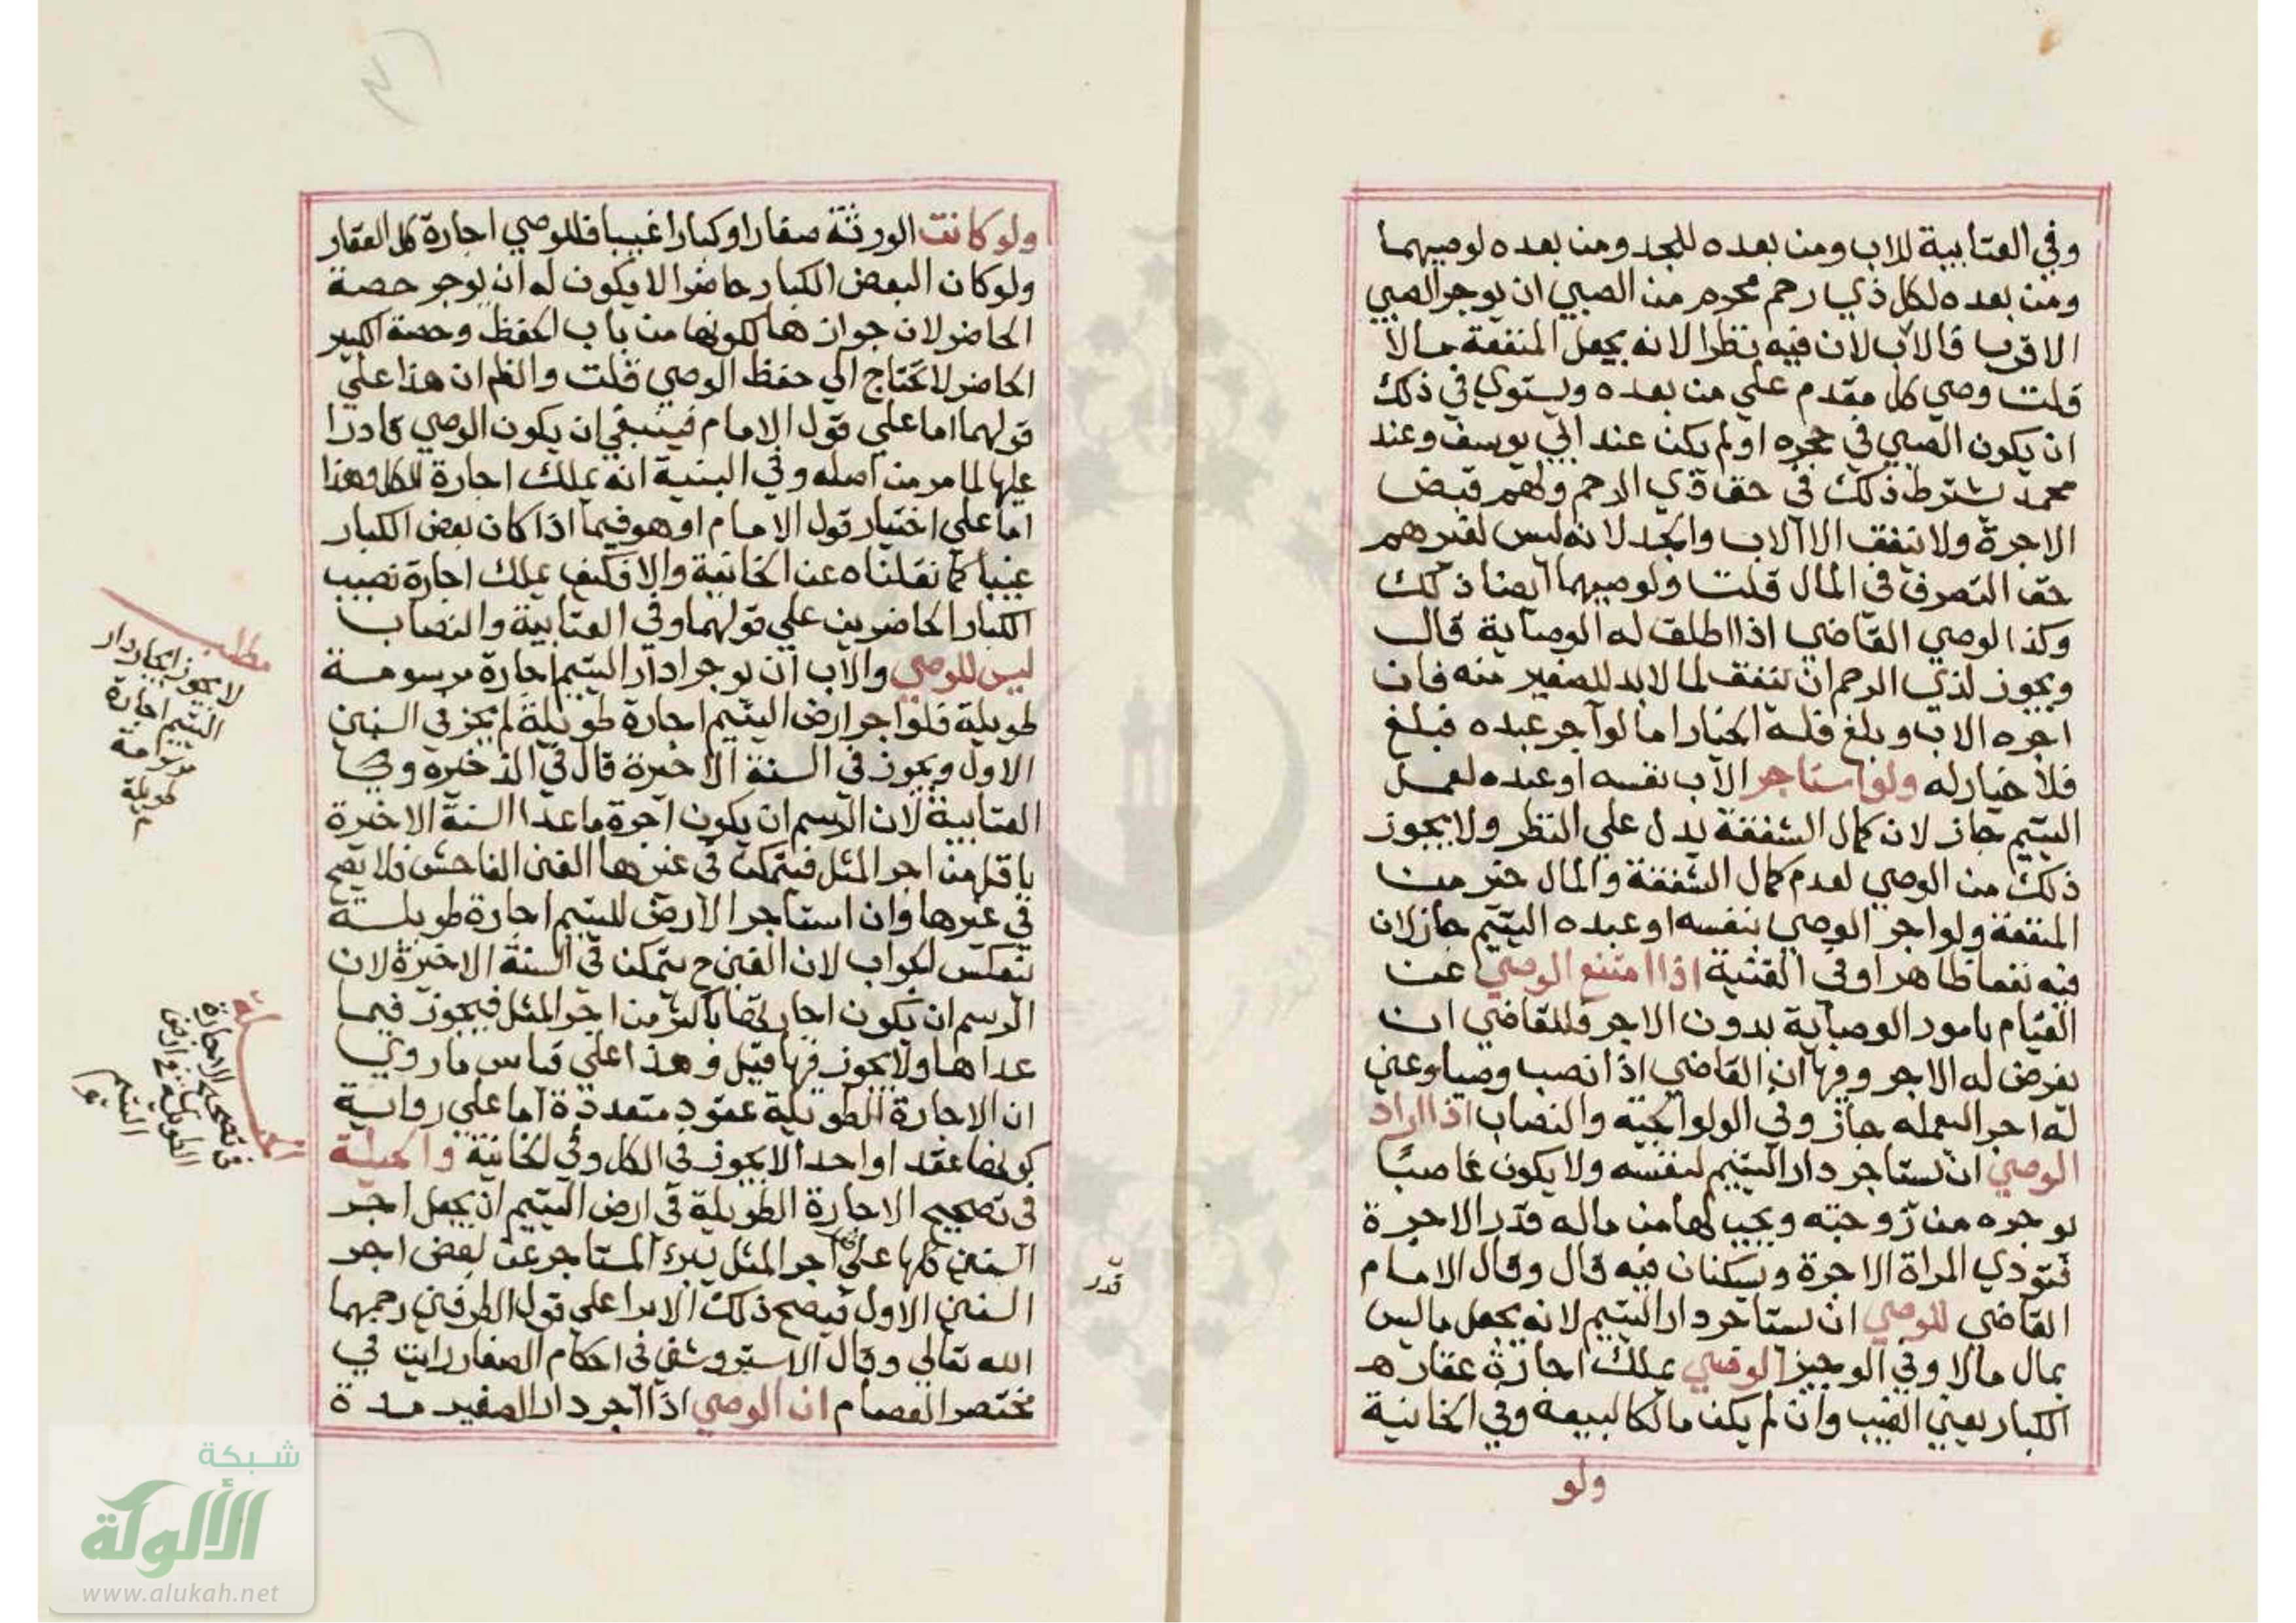 وفي العتابية للاب ومن بعده للجد ومن بعده لوصيهما
ومن بعده لكل ذي رحم محرم من الصبي ان يوجر الصبي
الاقرب فالاب لان فيه نظرا لانه يجعل المنفعة مالا
قلت وصي كل مقدم علي من بعده ويستوي في ذلك
ان يكون الصبي في حجره او لم يكن عند ابي يوسف وعند
محمد يشترط ذلك في حق ذي الرحم ولهم قبض
الاجرة ولا تنفق الا الاب والجد لانه ليس لغيرهم
حق التصرف في المال قلت ولوصيهما ايضا ذلك
وكذا لوصي القاضي اذا اطلق له الوصاية قال
ويجوز لذي الرحم ان تنفق لما لابد للصغير منه فان
اجره الاب وبلغ فله الخيار اما لو آجر عبده فبلغ
فلا خيار له ولو استاجر الاب نفسه او عبده لعمل
اليتيم جاز لان كمال الشفقة يدل علي النظر ولا يجوز
ذلك من الوصي لعدم كمال الشفقة والمال خير من
المنفعة ولو اجر الوصي بنفسه او عبده اليتيم جاز لان
فيه نفعا ظاهرا وفي القنية اذا امتنع الوصي عن
القيام بامور الوصاية بدون الاجر فللقاضي ان
يفرض له الاجر وفيها ان القاضي اذا نصب وصيا وعين
له اجر العمله جاز وفي الولوالجيه والنصاب اذا اراد
الوصي ان يستاجر دار اليتيم لنفسه ولا يكون غاصبًا
يوجره من زوجته ويجيب لها من ماله قدر الاجرة
فتودي المراة الاجرة ويسكنان فيه قال وقال الامام
القاضي للوصي ان يستاجر دار اليتيم لانه يجعل ما ليس
بمال مالا وفي الوجيز الوصي يملك اجازة عقار ه
الكبار يعني الغيب وان لم يكن مالكا لبيعه وفي الخانية
ولو
ولو كانت الورثة صغارا وكبارا غيبا فللوصي اجارة كل العقار
ولو كان البعض الكبار حاضرا لا يكون له ان يوجر حصة
الحاضر لان جوازها لكونها من باب الحفظ وحصة الكبير
الحاضر لا تحتاج الي حفظ الوصي قلت والظم ان هذا علي
قولهما اما علي قول الامام فينبغي ان يكون الوصي قادرا
عليها لما مر من اصله وفي البنية انه يملك اجارة الكل وهذا
اما علي اختيار قول الامام او هو فيما اذا كان بعض الكبار
غيبا كما نقلناه عن الخانية والا فكيف يملك اجارة نصيب
الكبار الحاضرين علي قولهما وفي العتابية والنصاب
ليس للوصي والاب ان يوجرا دار اليتيم اجارة مرسومة
طويلة فلو اجر ارض اليتيم اجارة طويلة لم يجز في السنين
الاول ويجوز في السنة الاخيرة قال في الذخيره و
العتابية لان الرسم ان يكون اجرة ما عدا السنة الاخيرة
باقل من اجر المثل فيتمكن في غيرها الغبن الفاحش فلا يصح
في غيرها وان استاجر الارض لليتيم اجارة طويلة
ينعكس الجواب لان الغبن ح يتمكن في السنة الاخيرة لان
الرسم ان يكون باكثر من اجر المثل فيجوز فيما
عداها ولا يجوز فيها قيل وهذا علي قياس ما روي
ان الاجارة الطويلة عقود متعددة اما علي رواية
كونها عقدا واحدا لا يجوز في الكل وفي الخانية والحيلة
في تصحيح الاجارة الطويلة في ارض اليتيم ان يجعل اجر
السنين كلها علي اجر المثل يبرء المستاجر عن بعض اجر
السنين الاول فيصح ذلك الابرا علي قول الطرفين رحمهما
الله تعالي وقال الاستروشني في احكام الصغار رايت في
مختصر العصام ان الوصي اذا اجر دار الصغير مدة
مطلب
لا يجوز ايجار دار
اليتيم اجارة
مرسومة
طويلة
في تصحيح الاجارة
الطويلة في ارض
اليتيم
قدر
شبكة
الألوكة
www.alukah.net